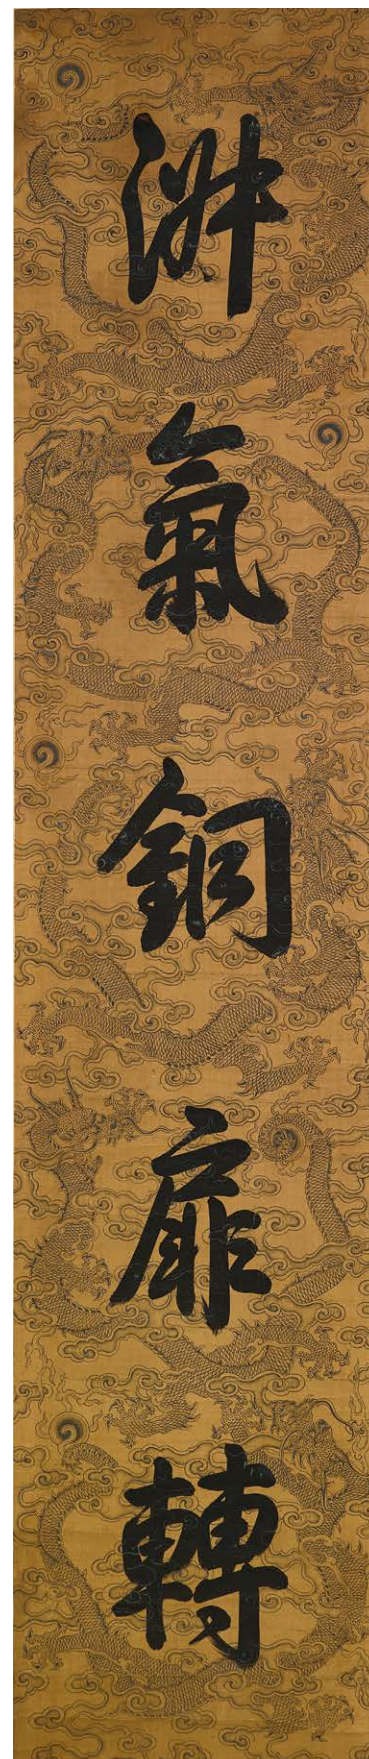 淑氣銅扉轉